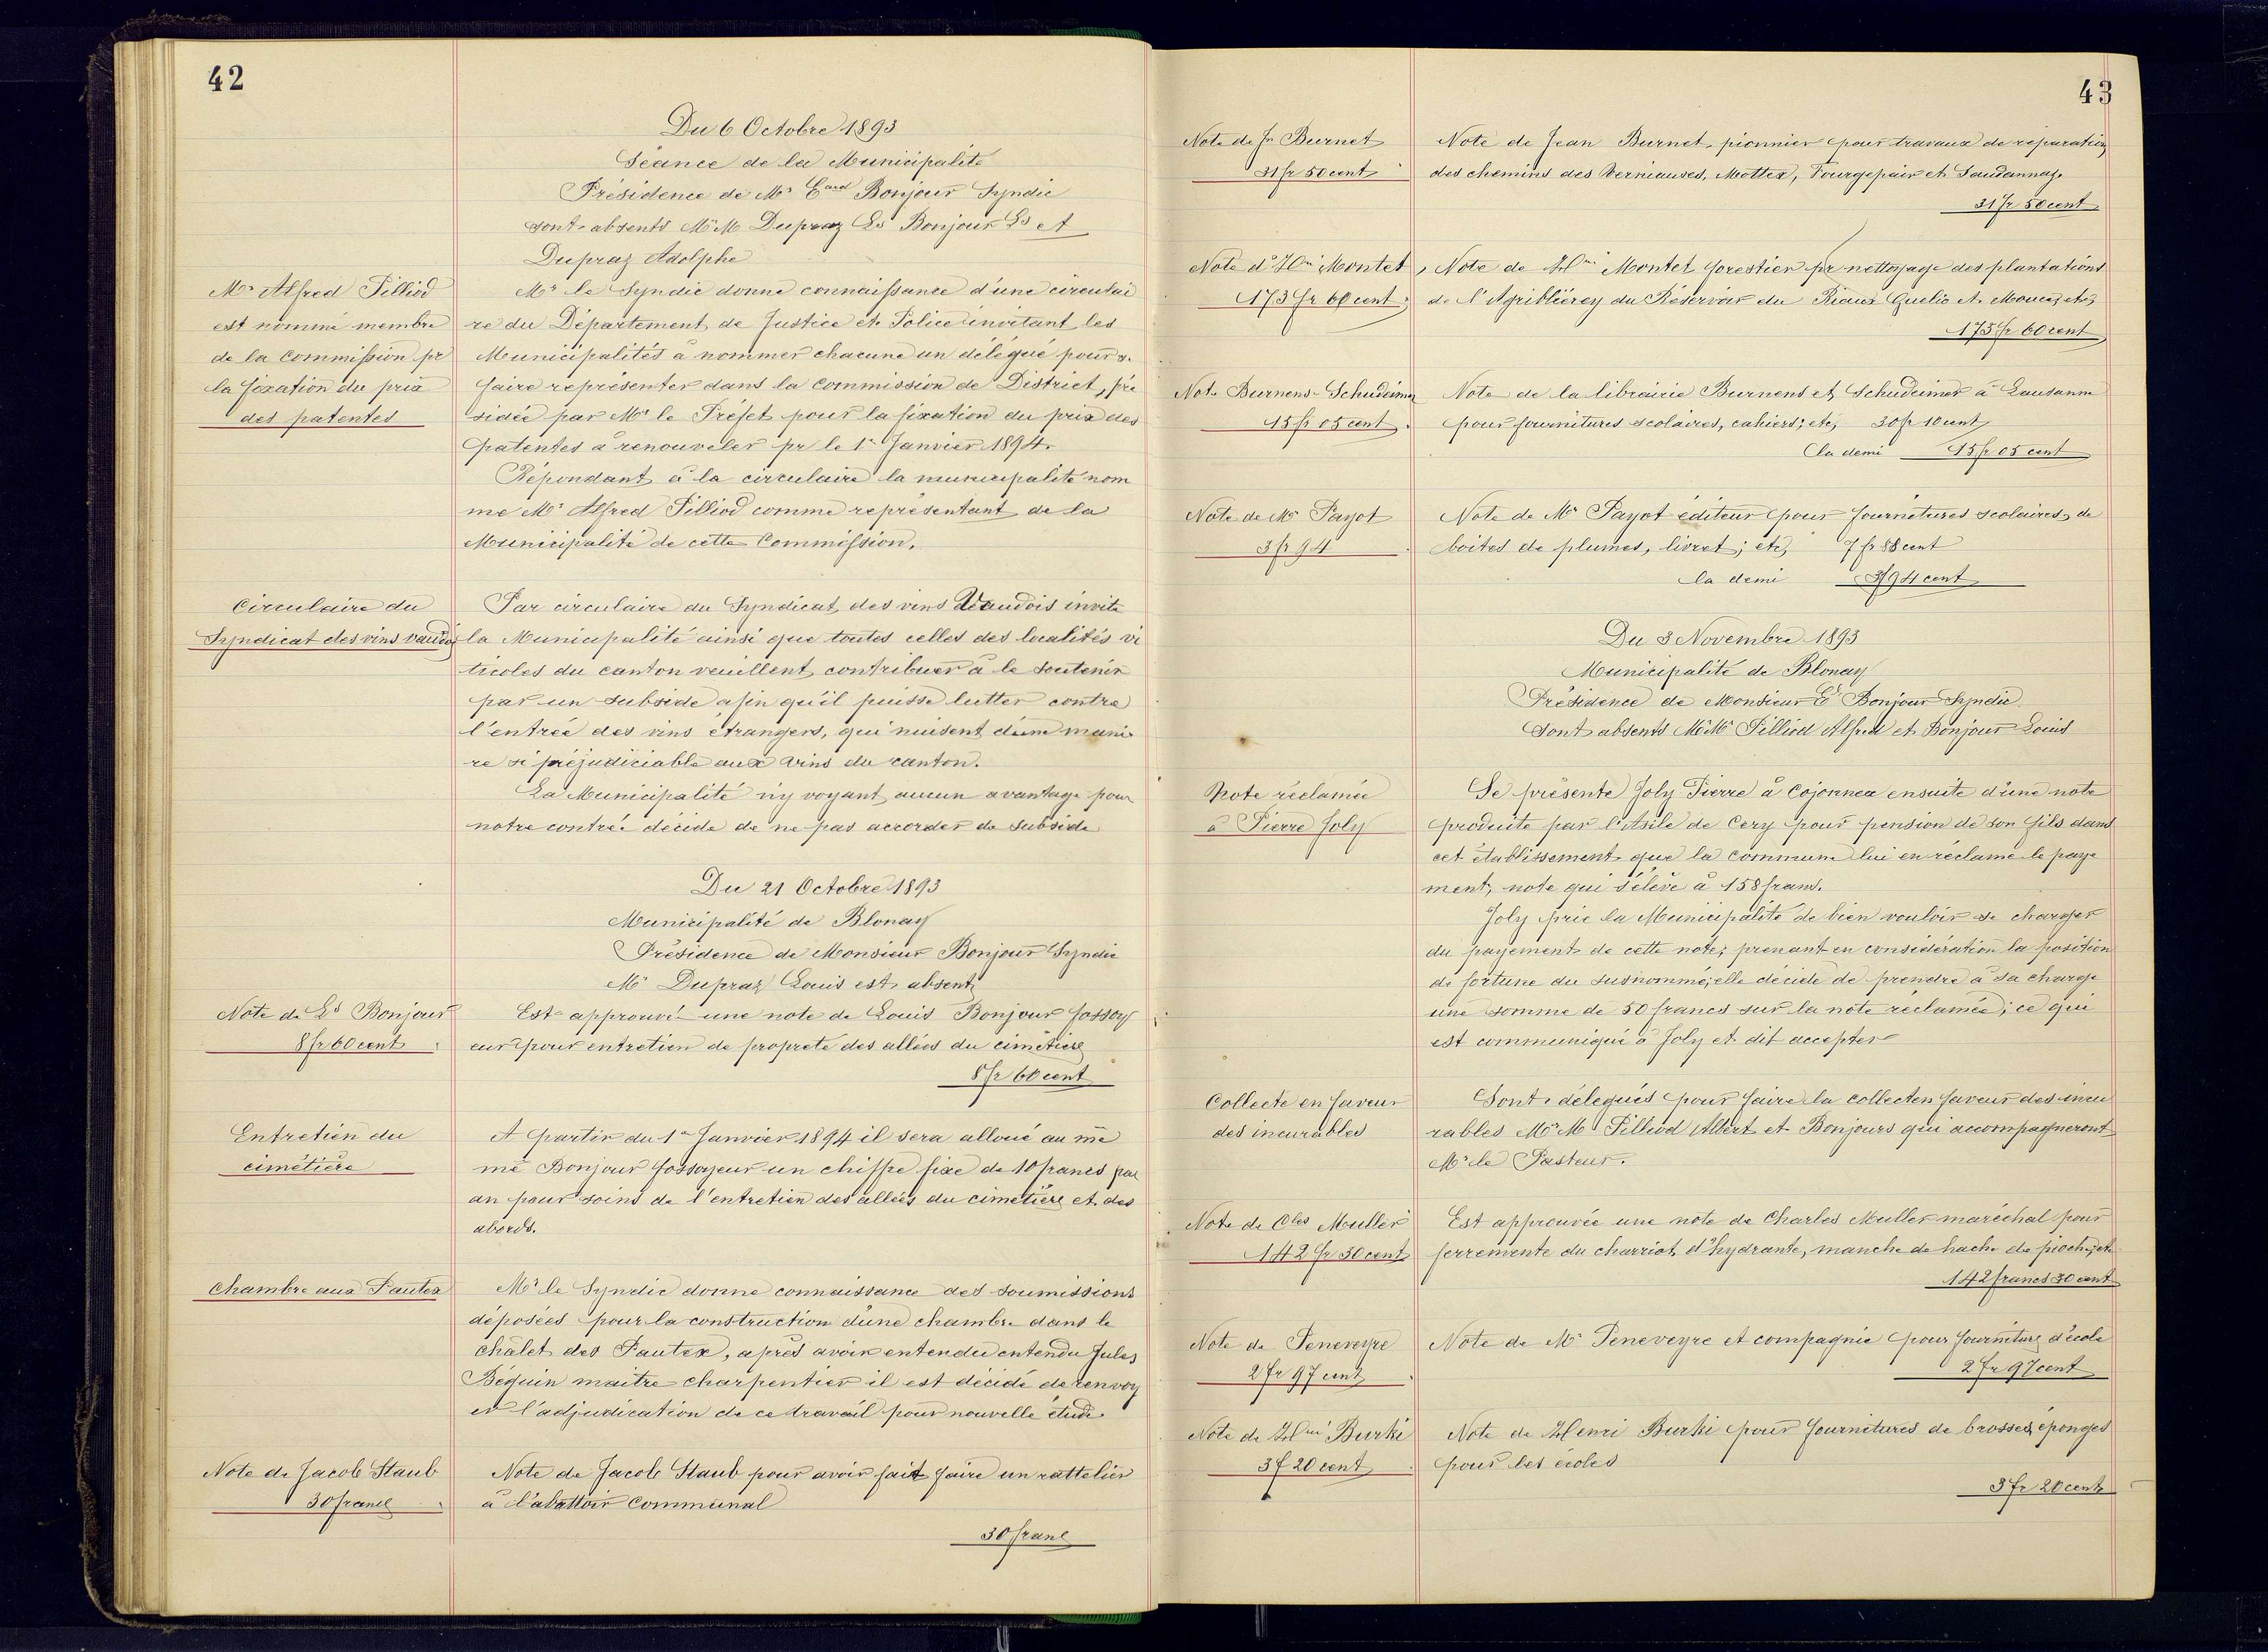 42
Du 6 Octobre 1893
Séance de la Municipalité
Présidence de Mr Eard Bonjour Syndic
sont absents M.M. Dupraz Ls Bonjour Ls et
Dupraz Adolphe
Mr Alfred Pilliod
est nommé membre
de la Commission pr
la fixation du prix
des patentes
Mr le Syndic donne connaissance d'une circulai
re du Département de Justice et Police invitant les
Municipalités à nommer chacune un délégué pour s.
faire représenter dans la commission de District, pré
sidée par Mr le Préfet pour la fixation du prix des
patentes à renouveler pr le 1r Janvier 1894.
Répondant à la circulaire la municipalité nom
me Mr Alfred Pilliod comme représentant de la
Municipalité de cette Commission.
Circulaire du
Syndicat des vins vaudois
Par circulaire du Syndicat des vins Vaudois invite
la Municipalité ainsi que toutes celles des localités vi
ticoles du canton veuillent contribuer à le soutenir
par un subside afin qu'il puisse lutter contre
l'entrée des vins étrangers, qui nuisent d'une maniè
re si préjudiciable aux vins du canton.
La Municipalité n'y voyant aucun avantage pour
notre contrée décide de ne pas accorder de subside
Du 21 Octobre 1893
Municipalité de Blonay
Présidence de Monsieur Bonjour Syndic
Mr Dupraz Louis est absent
Note de Ls Bonjour
8 fr 60 cent
Est approuvé une note de Louis Bonjour fossoy
eur pour entretien de propreté des allées du cimétière
8 fr 60 cent
Entretien du
cimétière
A partir du 1er Janvier 1894 il sera alloué au mê
me Bonjour fossoyeur un chiffre fixe de 10 francs par
an pour soins de l'entretien des allées du cimetière et des
abords.
Chambre aux Pautex
Mr le Syndic donne connaissance des soumissions
déposées pour la construction d'une chambre dans le
châlet des Pautex, après avoir entendu entendu Jules
Béguin maitre charpentier il est décidé de renvoy
er l'adjudication de ce travail pour nouvelle étude
Note de Jacob Staub
30 franc
Note de Jacob Staub pour avoir fait faire un rattelier
à l'abattoir communal
30 franc
43
Note de Jn Burnet
31 fr 50 cent
Note de Jean Burnet, pionnier pour travaux de réparation
des chemins des Verniauses, Mottex, Fourgepair et
31 fr 50 cent
Note d' Hri Montet
173 fr 60 cent
Note de Hri Montet forestier pr nettoyage des plantations
de l' du Réservoir du
173 fr 60 cent
Note Burnens-Schudeimer
15 fr 05 cent
Note de la librairie Burnens et Schudeimer à Lausanne
pour fournitures scolaires, cahiers; etc, 30 fr 10 cent
la demi 15 fr 05 cent
Note de Mr Payot
3 fr 94
Note de Mr Payot éditeur pour fournitures scolaires, de
boites de plumes, livret; etc, 7 fr 88 cent
la demi 3 f 94 cent
Du 3 Novembre 1893
Municipalité de Blonay
Présidence de Monsieur Ed Bonjour Syndic
Sont absents M.M. Pilliod Alfred et Bonjour Louis
Note réclamée
à Pierre Joly
Se présente Joly Pierre à Cojonnex ensuite d'une note
produite par l'Asile de Cery pour pension de son fils dans
cet établissement que la commune lui en réclame le paye
ment, note qui s'élève à 158 francs.
Joly prie la Municipalité de bien vouloir se charger
du payement de cette note; prenant en considération la position
de fortune du susnommé; elle décide de prendre à sa charge
une somme de 50 francs sur la note réclamée; ce qui
est communiqué à Joly et dit accepter
Collecte en faveur
des incurables
Sont délegués pour faire la collecte en faveur des incu
rables M.M. Pilliod Albert et Bonjours qui accompagneront
Mr le Pasteur.
Note de Chles Muller
142 fr 30 cent
Est approuvée une note de Charles Muller maréchal pour
ferremente du charriot d'hydrante, manche de hache de pioche, etc
142 francs 30 cent
Note de Peneveyre
2 fr 97 cent
Note de Mr Peneveyre et compagnie pour fourniture d'école
2 fr 97 cent
Note de Hri Burki
3 f 20 cent
Note de Henri Burki pour fournitures de brosses, éponges
pour les écoles
3 fr 20 cent